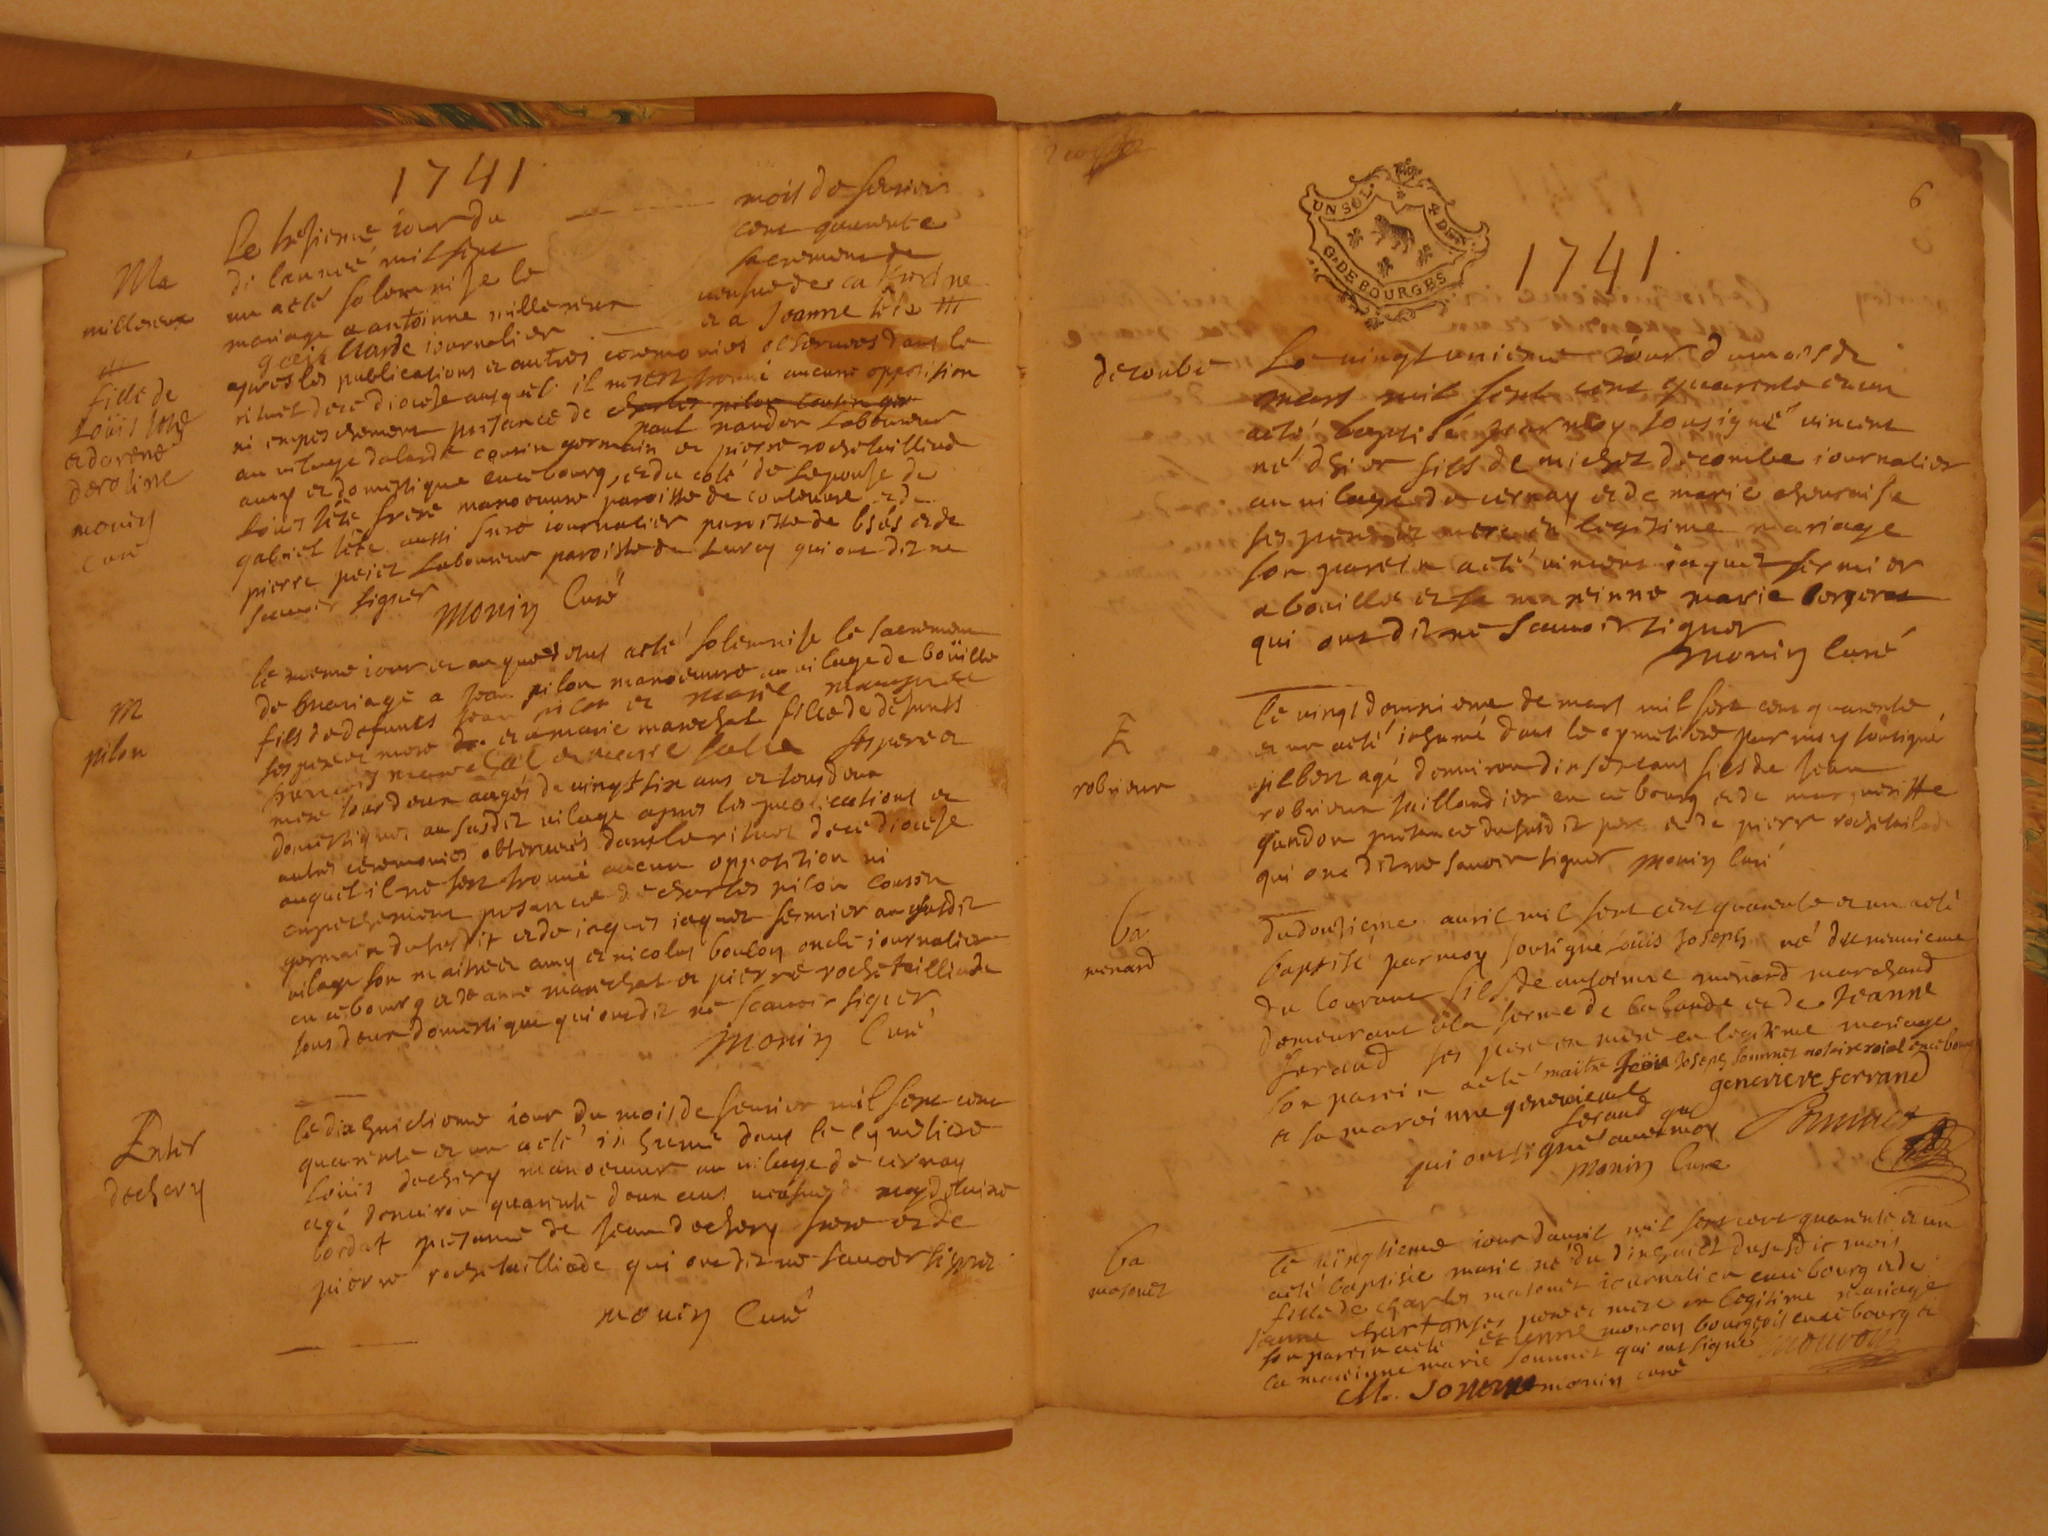 1741
Le tresieme iour du mois de feurier
di lanneé mil sept cent quarente
un a eté solemnise le sacrement de
mariage a antoinne millerieux veufue de catherine
iournalier et a Jeanne tête #
apres les publications et autres ceremonies obseruees dans le
rituel de ce diocese ausquels il ne sest trouué aucune opposition
ni empeschement presance de charles pilon cousin ger
paul nandon Laboureur
au vilage dalarde cousin germain et pierre rochetailliade
amy et domestique en ce bourg, et du coté de Lepouse de
Loüis tête frere manoeuure paroisse de couleuure et de
gabriel tête aussi frere iournalier paroisse de et de
pierre petet Laboureur paroisse de Lurcy qui ont dit ne
scauoir signer
monin Curé
Ma
millerieux
#
fille de
Loüis tête
et de rene
deroline
monin
Curé
le meme iour et an que dessus a eté solemnise le sacrement
de mariage a Jean pilon manoeuure au vilage de boüille
fils de defunts Jean pilon et marie
ses pere et mere et a marie marechal fille de defunts
francois marechal et marie salle ses pere et
mere tous deux aagés de vingt six ans et tous deux
domestiques au susdit vilage apres les publications et
autres ceremonies obseruées dans le rituel de ce diocese
auquel il ne sest trouué aucun opposition ni
empeschement presance de charles pilon cousin
germain du susdit et de jaques jaquet fermier au susdit
vilage son maitre et amy et nicolas boulon oncle iournalier
en ce bourg et de anne marechal et pierre rochetailliade
tous deux domestique qui ont dit ne scauoir signer
monin Curé
M
pilon
le dixhuictieme iour du mois de feurier mil sept cent
quarente et un a eté inhumé dans le cymetiere
Loüis dechery manoeuure au vilage de cernay
agé denuiron quarente deux ans veufue de
bordat presance de Jean dechery frere et de
pierre rochetailliade qui ont dit ne scauoer signer
monin Curé
Enter
dechery
6
UN SOL 4 DEN.
G. DE BOURGES
1741
decoube
Le vingt unieme iour du mois de
mars mil sept cent quarente et un
a eté baptisé par moy sousigné vincent
né d hier fils de michel decombe iournalier
au vilage de cernay et de marie
ses pere et mere en legitime mariage
son parein a eté vincent jaquet fermier
a boüille et sa mareinne marie bergerat
qui ont dit ne scauoir signer
monin Curé
E
robrieux
le vingt deuxieme de mars mil sept cent quarente
et un a eté inhumé dans le cymetiere par moy sousigné
gilbert agé denuiron dixsept ans fils de Jean
robrieux taillandier en ce bourg et de margueritte
gandon presance du susdit pere et de pierre rochetailade
qui ont dit ne sauoir signer monin Curé
ba
menard
du douzieme auril mil sept cent quarente et un a eté
baptisé par moy sousigné Loüis Joseph né du neuuieme
du courant fils de antoinne menard marchand
demeurant à la ferme de la lande et de Jeanne
feraud ses pere et mere en legitime mariage
son parein a eté maitre Joseph sommet notaire roial en ce bourg
et sa mareinne geneuieue feraud
qui ont signé auec moy
monin Curé
genevieve ferrand
Sommet
ba
masonet
le vingtieme iour dauril mil sept cent quarente et un
a eté baptisée marie née du dixhuict du susdit mois
fille de charles masonet iournalier en ce bourg et de
Jeanne charton ses pere et mere en legitime mariage
son parein a eté etienne mouron bourgeois en ce bourg et
la mareinne marie sommet qui ont signé mouron
M. Sommet monin Curé